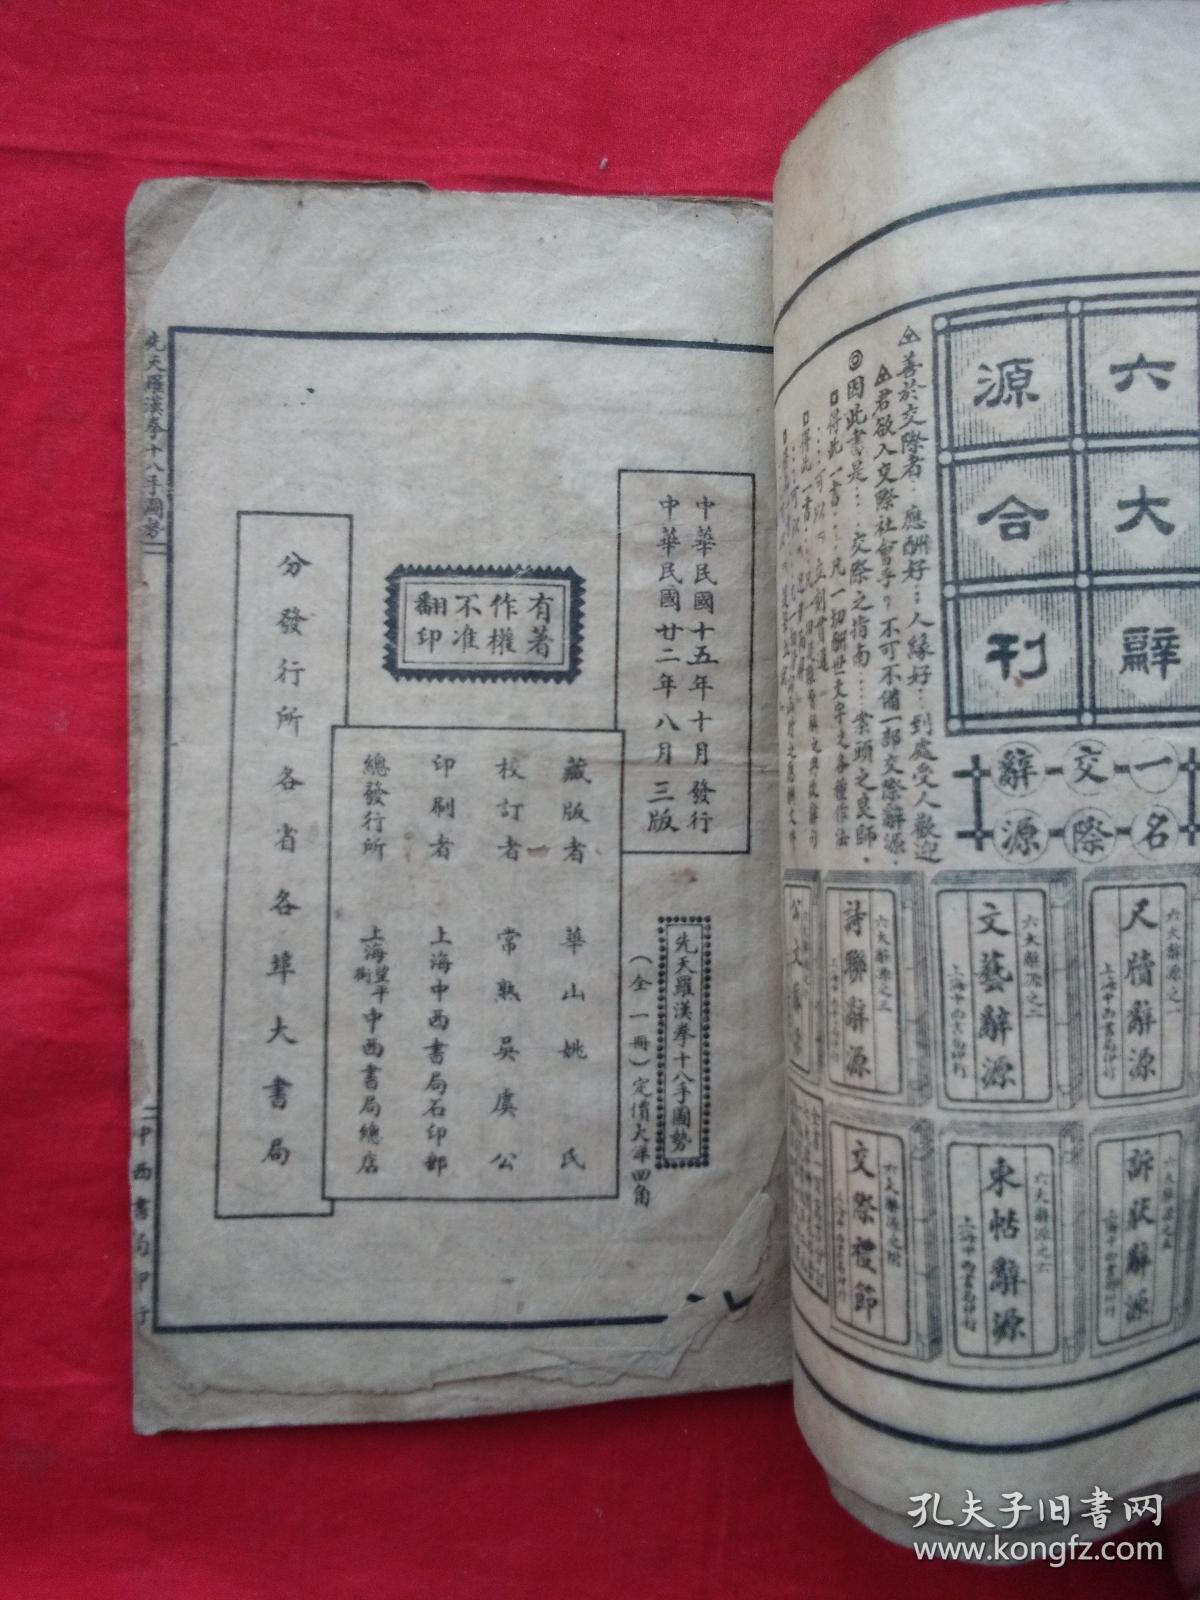 六大辭源合刊
一名交際辭源
善於交際者·應酬好···人緣好···到處受人歡迎
君欲入交際社會乎·不可不備一部交際辭源·
因此書是···交際之指南···案頭之良師·
得此一書···凡一切酬世文字之各種作法
尺牘辭源
上海中西書局印行
六大辭源之二
文藝辭源
上海中西書局印行
六大辭源之三
詩聯辭源
訴狀辭源
六大辭源之六
柬帖辭源
上海中西書局印行
六大辭源之附
交際禮節
中華民國十五年十月發行
中華民國廿二年八月三版
先天羅漢拳十八手圖勢
(全一冊)定價大洋四角
有著作權不准翻印
藏版者 華山姚氏
校訂者 常熟吳虞公
印刷者 上海中西書局石印部
總發行所 上海望平街中西書局總店
分發行所各省各埠大書局
先天羅漢拳十八手圖勢
中西書局印行
孔夫子旧书网
www.kongfz.com